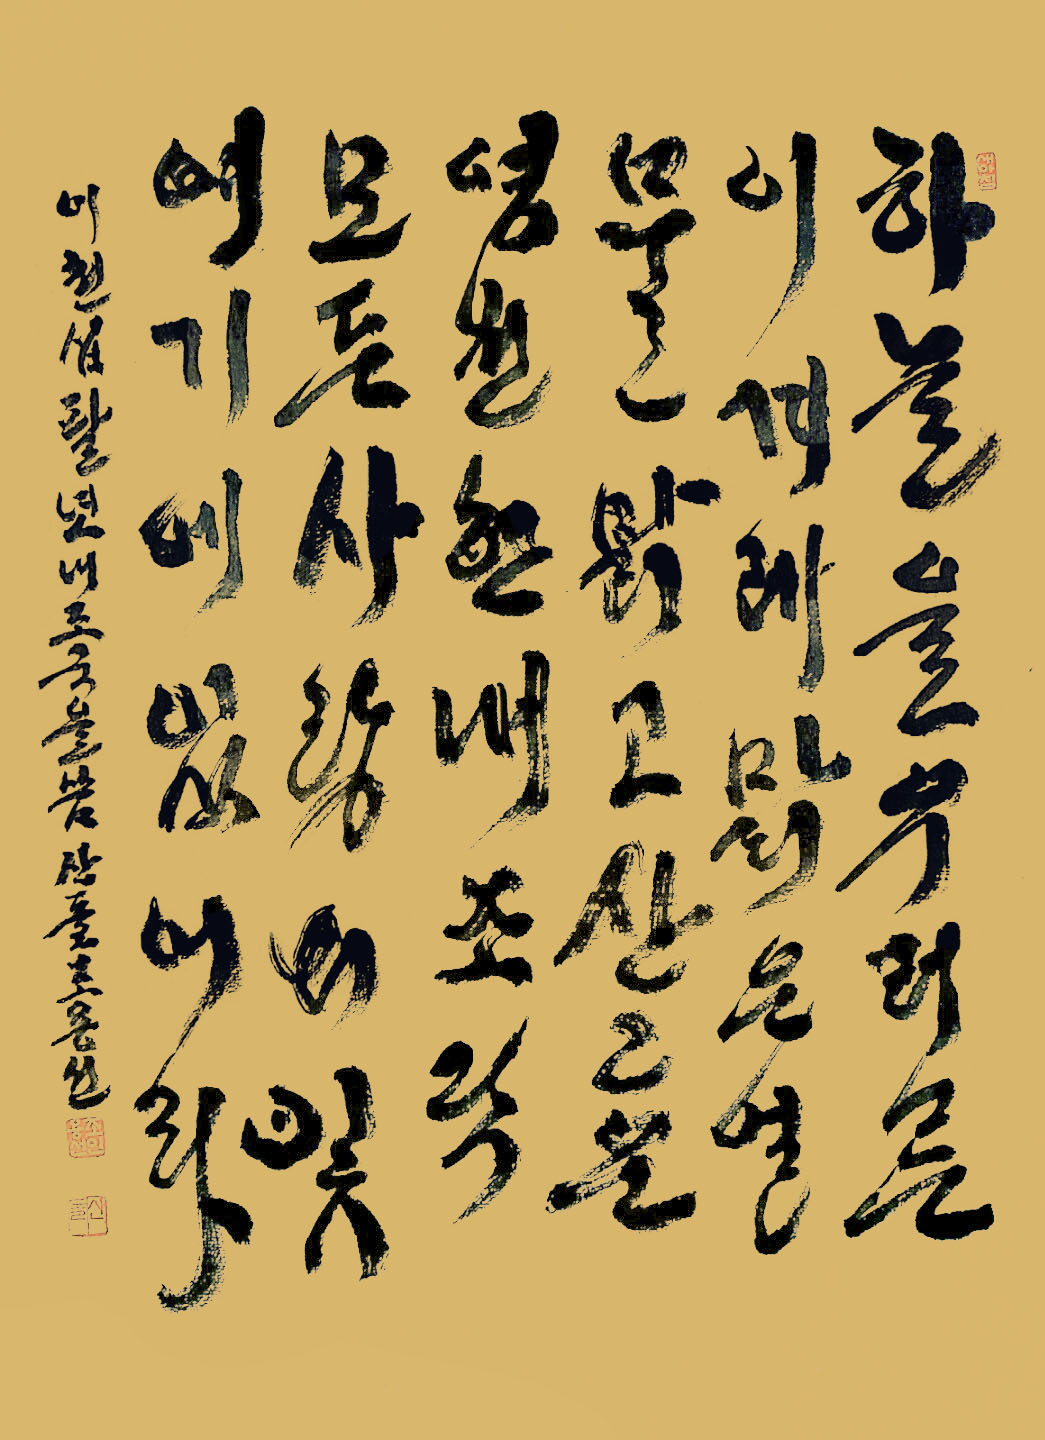 하늘을우러른
이겨레맑은얼
물맑고산고운
영원한내조국
모든사랑의빛
여기에있어라
이천십팔년내조국을씀산돌조용선